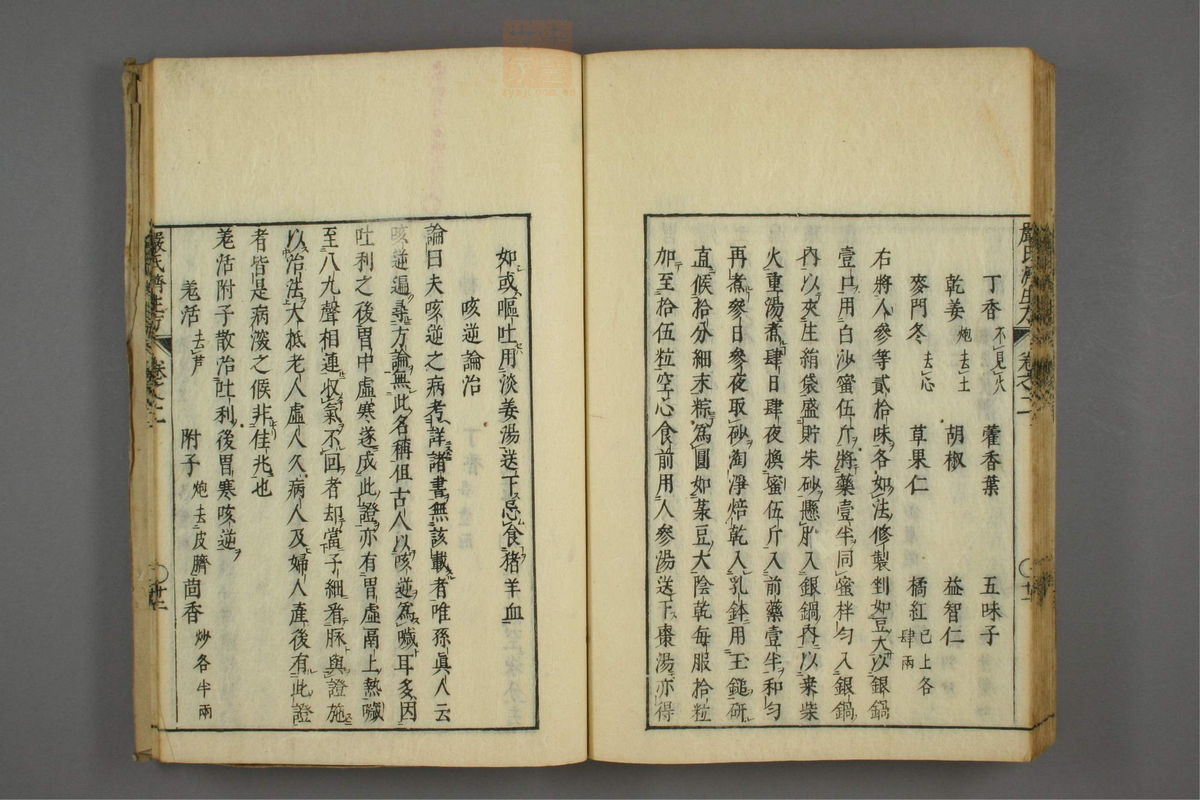 丁香不見火 藿香葉 五味子
乾姜炮去土 胡椒 益智仁
麥門冬去心 草果仁 橘紅已上各肆兩
右將人參等貳拾味各如法修製剉如豆大以銀鍋
壹口用白沙蜜伍斤將藥壹半同蜜拌勻入銀鍋
內以夾生絹袋盛貯朱砂懸於入銀鍋內以桒柴
火重湯煮肆日肆夜換蜜伍斤入前藥壹半和勻
再煮參日參夜取砂淘淨焙乾入乳鉢用玉鎚研
直候拾分細末粽為圓如菉豆大陰乾每服拾粒
加至拾伍粒空心食前用人參湯送下棗湯亦得
如或嘔吐用淡姜湯送下忌食猪羊血
咳逆論治
論曰夫咳逆之病考詳諸書無該載者唯孫真人云
咳逆遍尋方論無此名稱但古人以咳逆為噦耳多因
吐利之後胃中虛寒遂成此證亦有胃虛膈上熱噦
至八九聲相連收氣不回者却當子細看脉與證施
以治法大抵老人虛人久病人及婦人產後有此證
者皆是病深之候非佳兆也
羌活附子散治吐利後胃寒咳逆
羌活去芦 附子炮去皮臍 茴香炒各半兩
嚴氏濟生方 卷之二 〇廿二